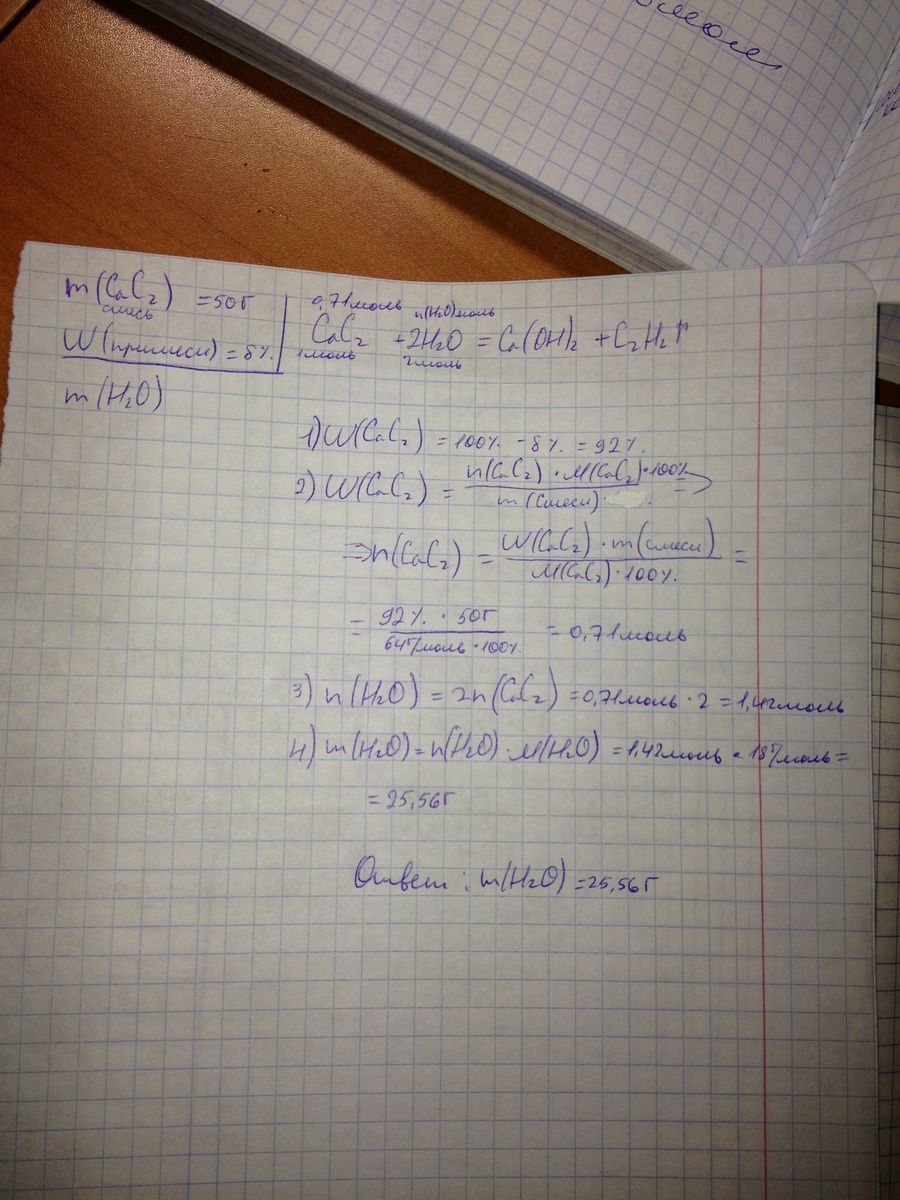 m(CaC₂) = 50г
смесь
W(примеси) = 8%
m(H₂O)
0,71моль n(H₂O)моль
CaC₂ + 2H₂O = Ca(OH)₂ + C₂H₂↑
1моль 2моль
1) W(CaC₂) = 100% - 8% = 92%.
2) W(CaC₂) = n(CaC₂) · M(CaC₂) · 100% / m(смеси) =>
=> n(CaC₂) = W(CaC₂) · m(смеси) / M(CaC₂) · 100% =
= 92% · 50г / 64г/моль · 100% = 0,71моль
3) n(H₂O) = 2n(CaC₂) = 0,71моль · 2 = 1,42моль
4) m(H₂O) = n(H₂O) · M(H₂O) = 1,42моль · 18г/моль =
= 25,56г
Ответ : m(H₂O) = 25,56г